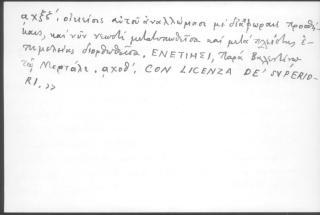 αχξδ', οἰκείοις αὐτοῦ ἀναλλώμασι μὲ διαφόραις προσθή-
καις, καὶ νῦν νεωστὶ μετατυπωθεῖσα καὶ μετὰ πλείστης ἐ-
πιμελείας διορθωθεῖσα. ΕΝΕΤΙΗΣΙ, Παρὰ Βαλεντίνῳ
τῷ Μορτάλι. αχοθ'. CON LICENZA DE' SVPERIO-
RI.»